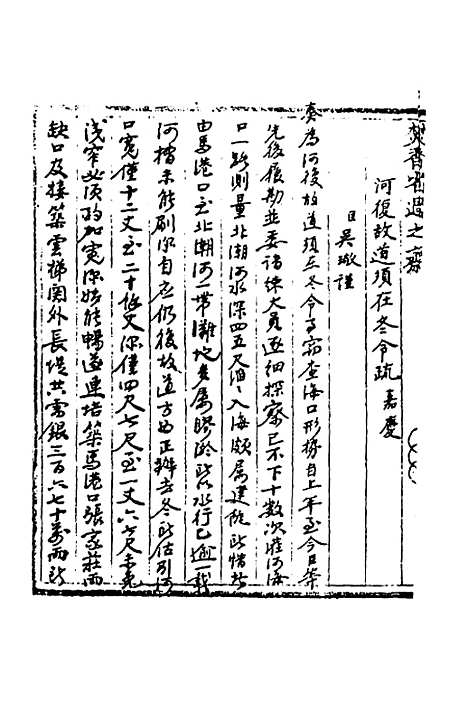 焚香省過之齋
河復故道須在冬令疏 嘉慶
臣吳璥謹
奏為河復故道須在冬令事竊查海口形勢自上年至今臣等
先後履勘並委諳練大員逐細探察已不下十數次雚河海
口一路測量北潮河水深四五尺洄入海頗屬建瓴所惜者
由馬港口至北潮河一帶灘地多屬膠淤所以水行已逾一載
河槽未能刷深自应仍復故道方为正辦去冬所估引河
口寬僅十二丈至二十餘丈深僅四尺七尺至一丈六七尺未免
淺窄必須酌加寬深始能暢達連培築馬港口張家莊兩
缺口及接築雲梯関外長堤共需銀三百六七十萬兩所